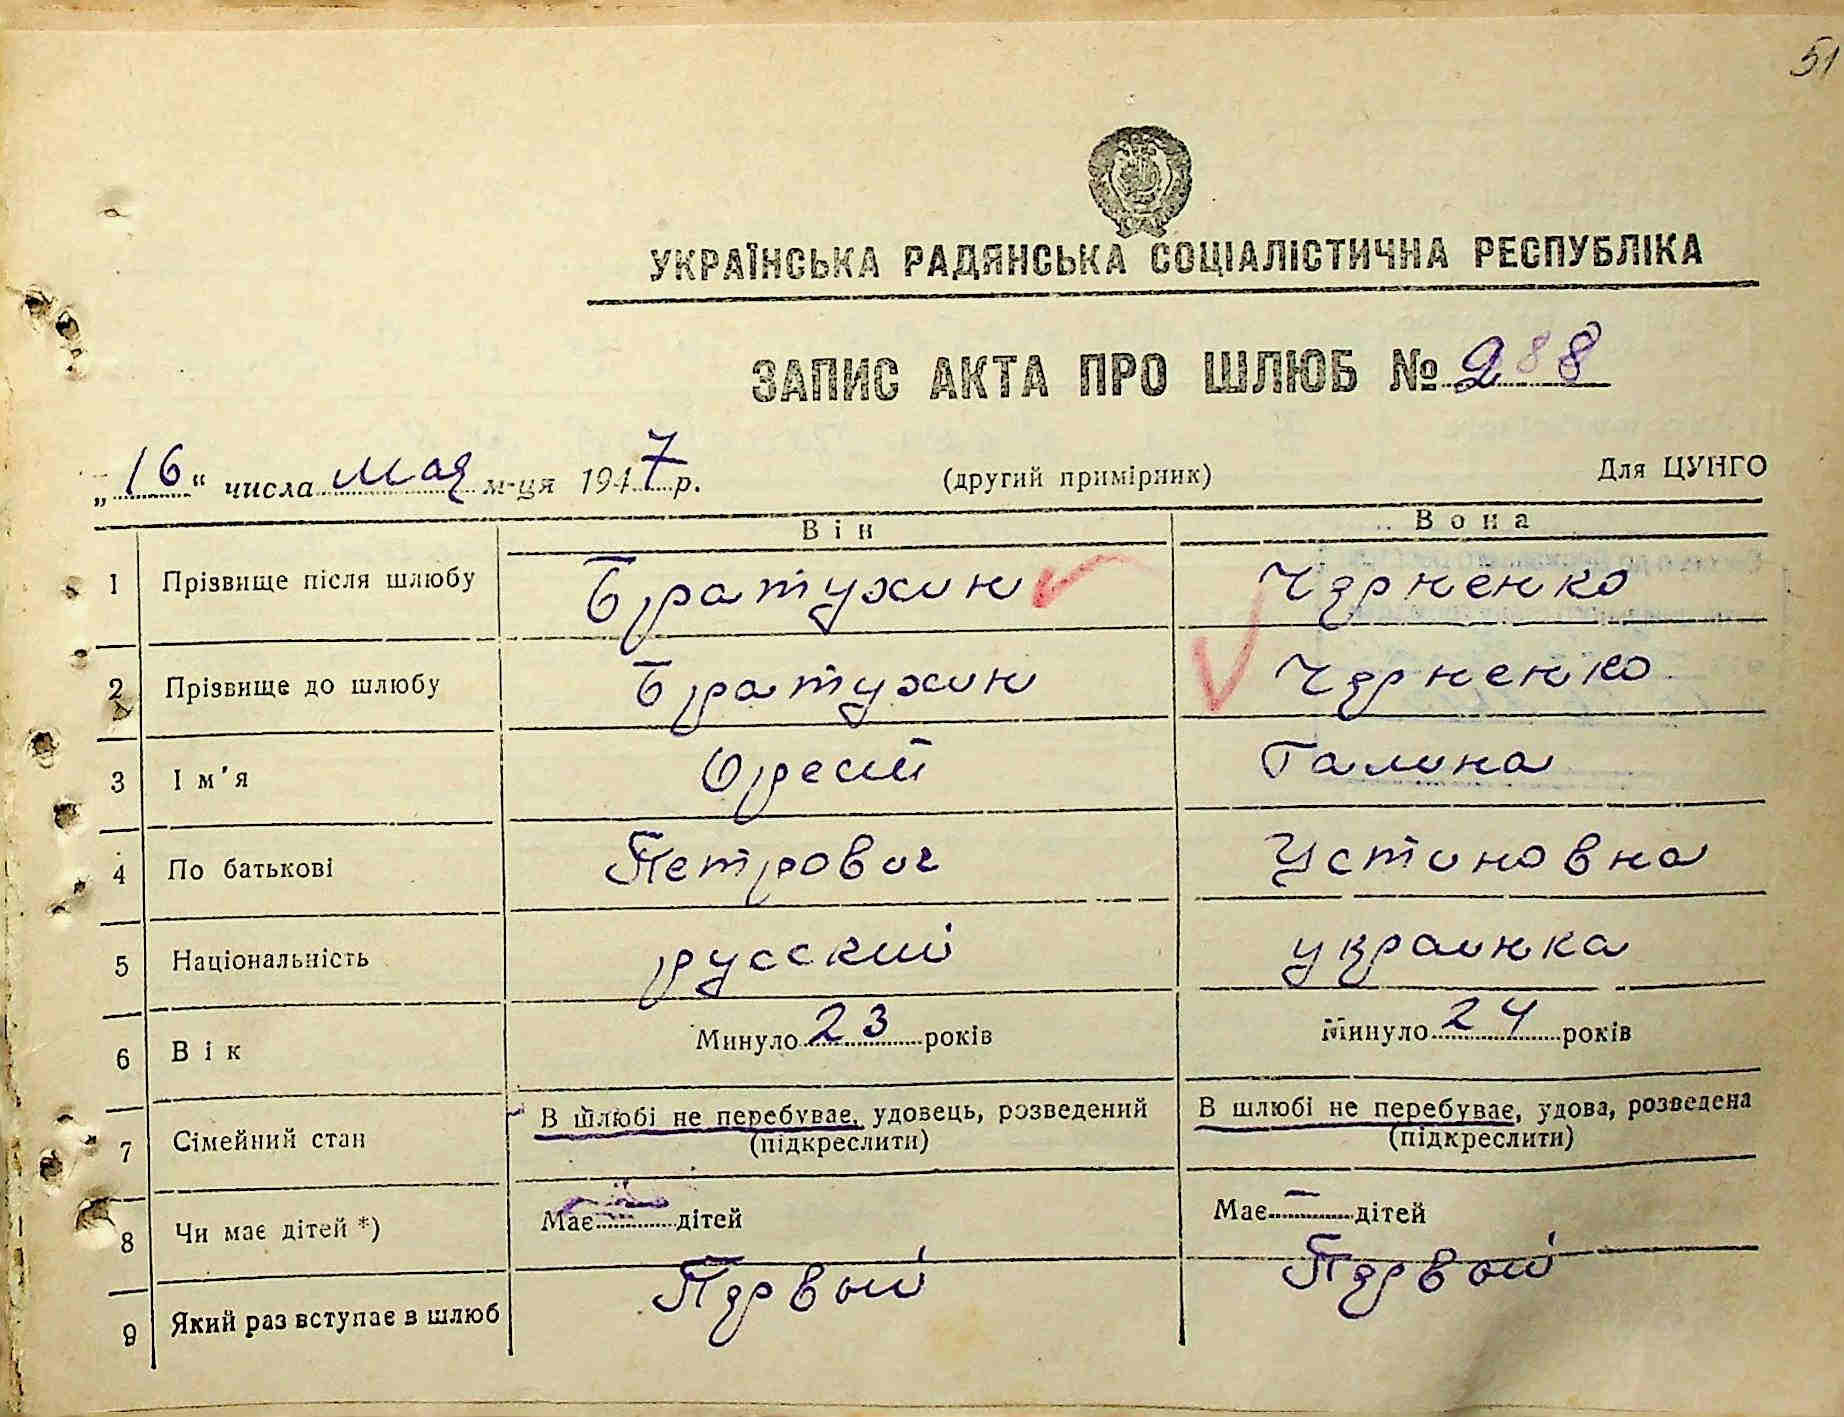 51
УКРАЇНСЬКА РАДЯНСЬКА СОЦІАЛІСТИЧНА РЕСПУБЛІКА
ЗАПИС АКТА ПРО ШЛЮБ № 288
„16“ числа мая м-ця 1947 р. (другий примірник) Для ЦУНГО
Він Вона
1 Прізвище після шлюбу Братухин Черненко
2 Прізвище до шлюбу Братухин Черненко
3 Ім'я Орест Галина
4 По батькові Петрович Устиновна
5 Національність русский украинка
6 Вік Минуло 23 років Минуло 24 років
7 Сімейний стан В шлюбі не перебуває, удовець, розведений В шлюбі не перебуває, удова, розведена
(підкреслити) (підкреслити)
8 Чи має дітей *) Має дітей Має — дітей
9 Який раз вступає в шлюб Первый Первый